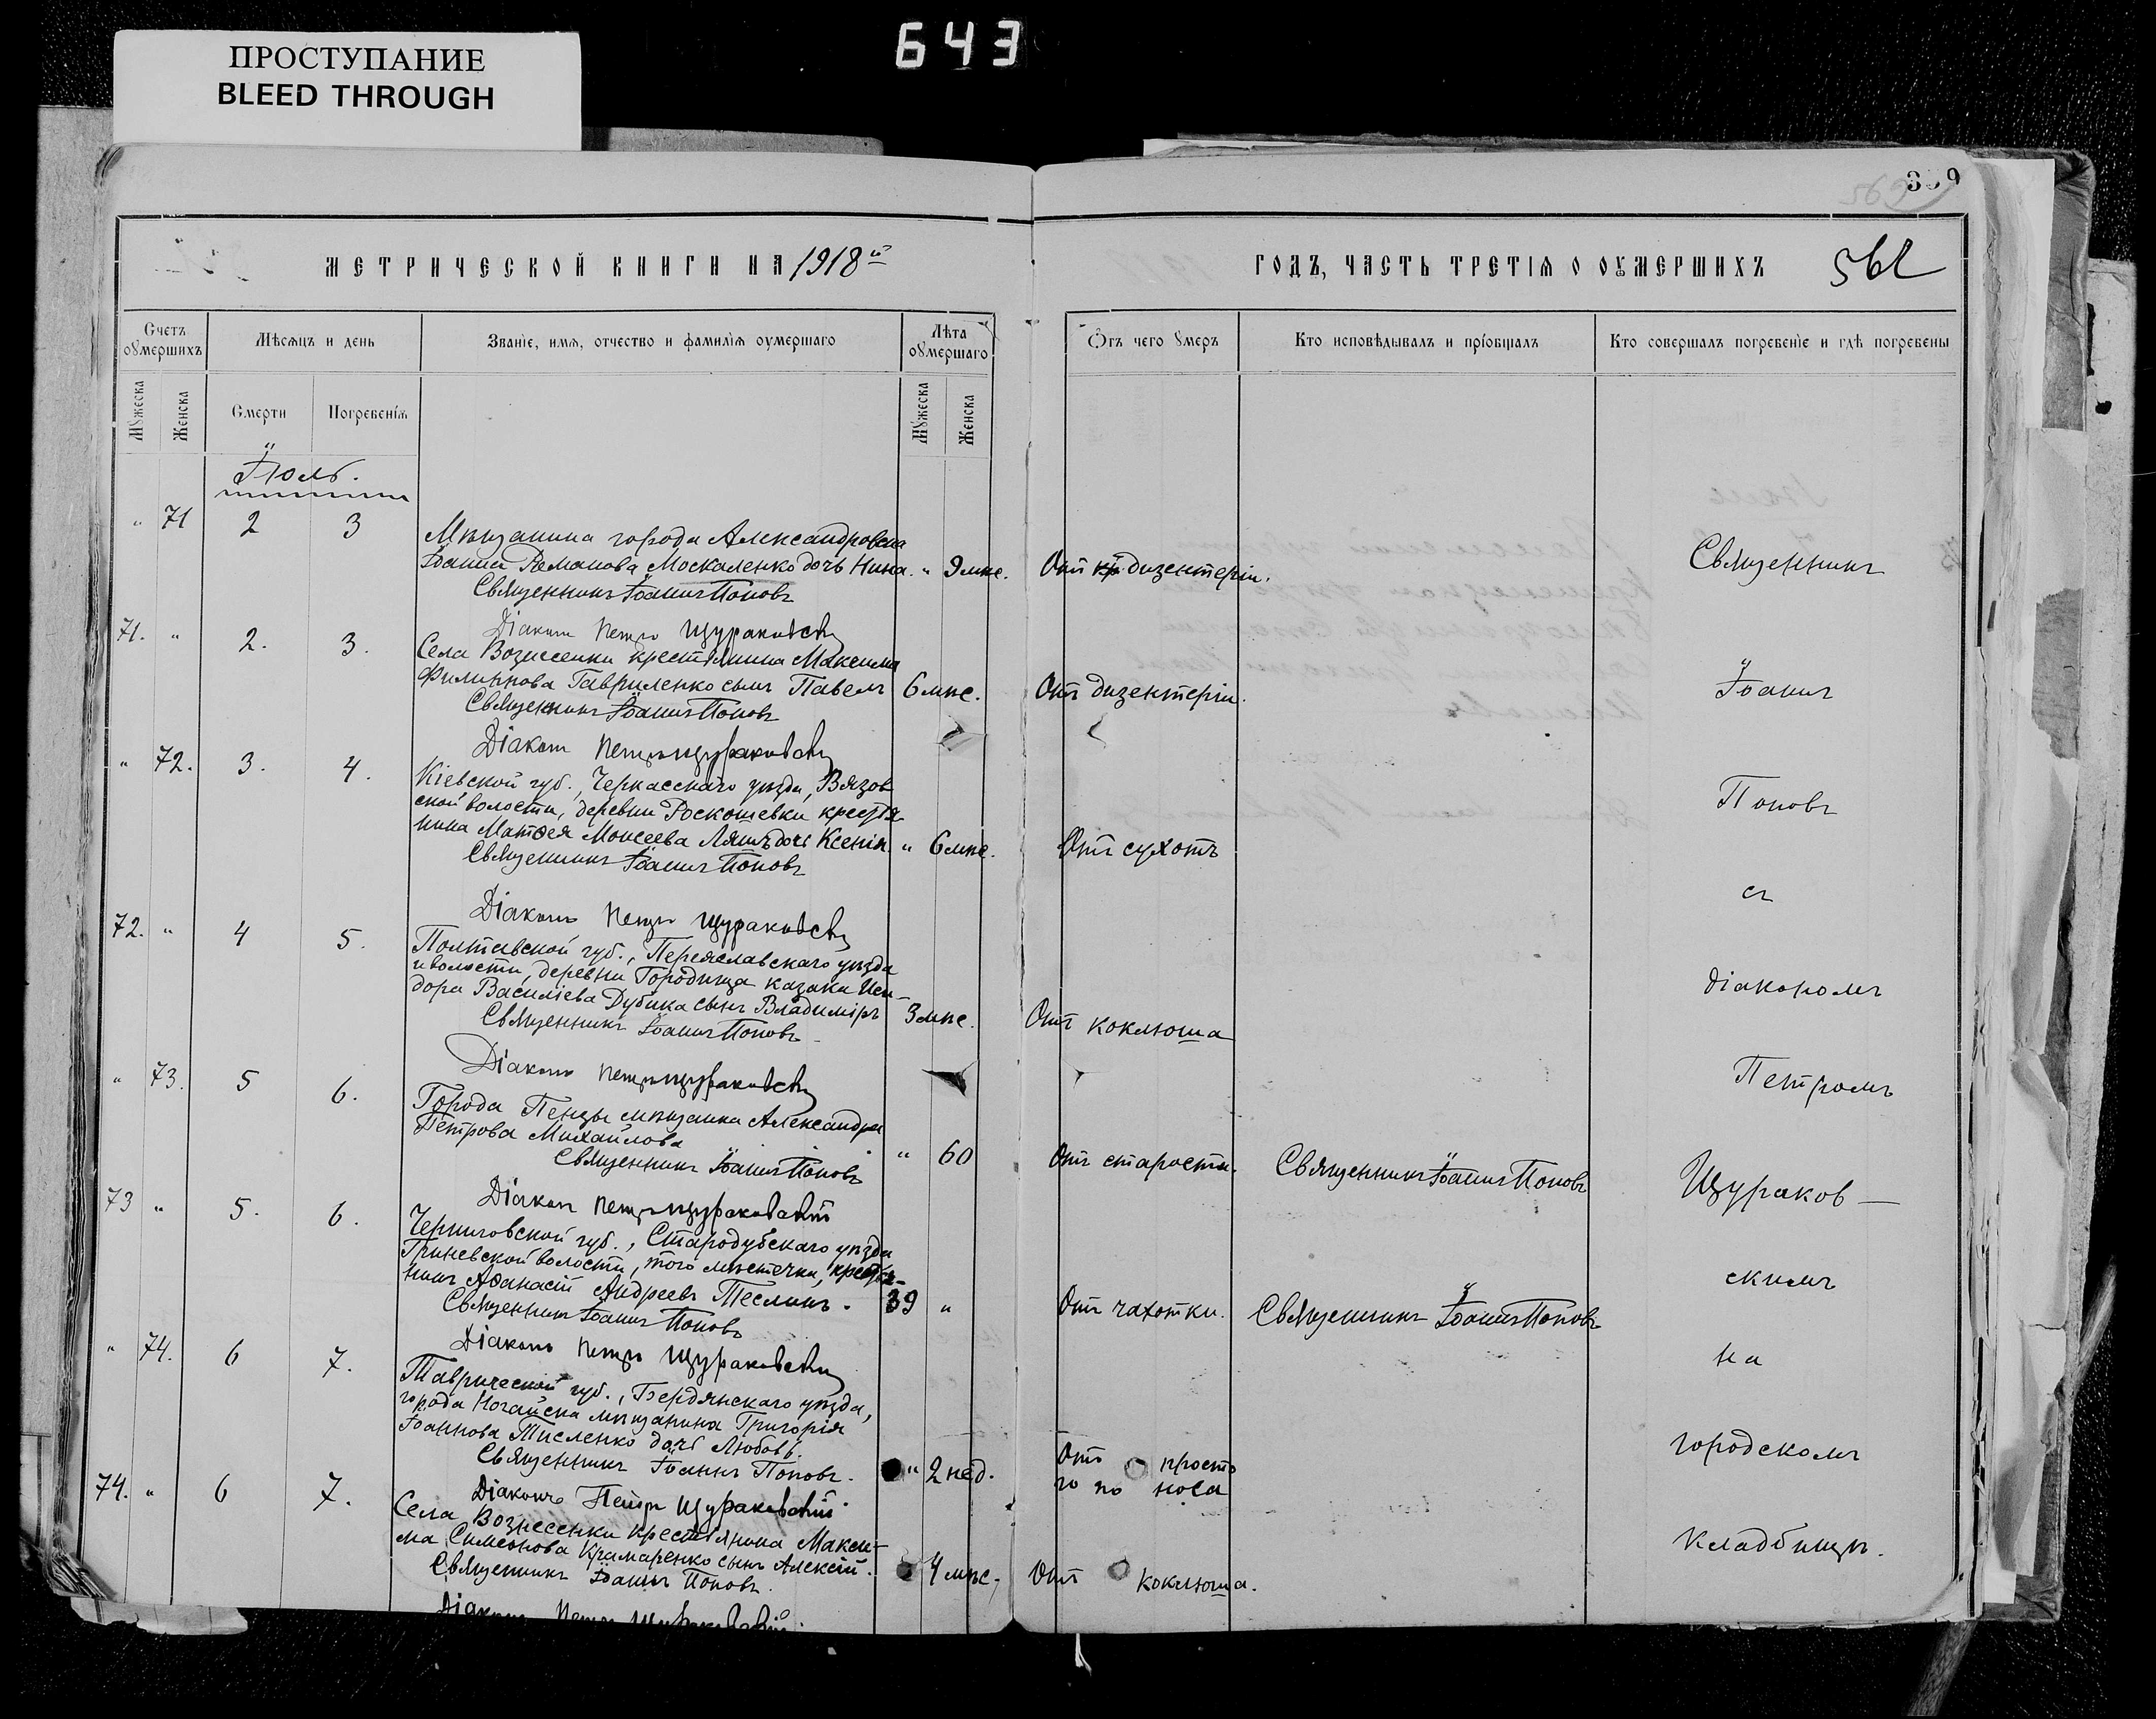 643
ПРОСТУПАНИЕ
BLEED THROUGH
МЕТРИЧЕСКОЙ КНИГИ НА 1918й
Счетъ оумершихъ
Мѣсѧцъ и день
Званіе, имѧ, отчество и фамилїѧ оумершаго
Лѣта оумершаго
Мужеска
Женска
Смерти
Погребенїѧ
Мужеска
Женска
Іюль.
" 71 2 3
Мѣщанина города Александровска
Іоанна Романова Москаленко дочь Нина. " 9 мѣс.
Священникъ Іоаннъ Поповъ
Діаконъ Петръ Щураковскій
71. " 2. 3.
Села Вознесенки крестьянина Максима
Филиппова Гавриленко сынъ Павелъ 6 мѣс.
Священникъ Іоаннъ Поповъ
Діаконъ Петръ Щураковскій
" 72. 3. 4.
Кіевской губ., Черкасскаго уѣзда, Вязов
ской волости, деревни Роскошевки крестья
нина Матѳея Моисеева Ляшъ дочь Ксенія. " 6 мѣс.
Священникъ Іоаннъ Поповъ
Діаконъ Петръ Щураковскій
72. " 4 5.
Полтавской губ., Переяславскаго уѣзда
и волости, деревни Городища казака Иси-
дора Василіева Дубика сынъ Владиміръ 3 мѣс.
Священникъ Іоаннъ Поповъ
Діаконъ Петръ Щураковскій
" 73. 5 6.
Города Пензы мѣщанка Александра
Петрова Михайлова " 60
Священникъ Іоаннъ Поповъ
Діаконъ Петръ Щураковскій
73 " 5. 6.
Черниговской губ., Стародубскаго уѣзда
Гриневской волости, того мѣстечка, крестья-
нинъ Аѳанасій Андреевъ Теслинъ. 39 "
Священникъ Іоаннъ Поповъ
Діаконъ Петръ Щураковскій
" 74. 6 7.
Таврической губ., Бердянскаго уѣзда,
города Ногайска мѣщанина Григорія
Іоаннова Тисленко дочь Любовь. " 2 нед.
Священникъ Іоаннъ Поповъ.
Діаконъ Петръ Щураковскій.
74. " 6 7.
Села Вознесенки крестьянина Макси-
ма Симеонова Крамаренко сынъ Алексій. 4 мѣс.
Священникъ Іоаннъ Поповъ.
Діаконъ Петръ Щураковскій.
ГОДЪ, ЧАСТЬ ТРЕТІѦ О ОУМЕРШИХЪ
Отъ чего умеръ
Кто исповѣдывалъ и прїобщалъ
Кто совершалъ погребенїе и гдѣ погребены
Отъ дизентеріи.
Отъ дизентеріи.
Отъ сухотъ
Отъ коклюша
Отъ старости. Священникъ Іоаннъ Поповъ
Отъ чахотки. Священникъ Іоаннъ Поповъ
Отъ просто
го по носа
Отъ коклюша.
Священникъ
Іоаннъ
Поповъ
съ
діакономъ
Петромъ
Щураков-
скимъ
на
городскомъ
кладбищѣ.